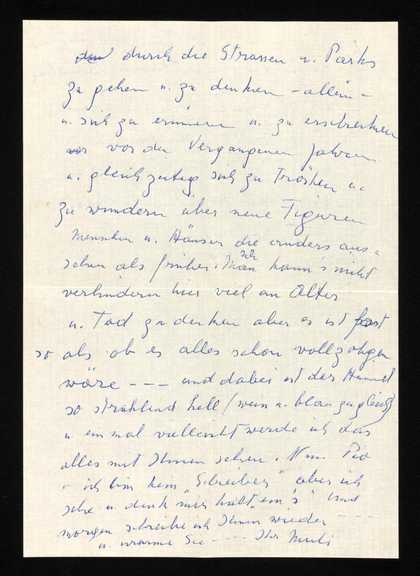 durch die Strassen u. Parks
zu gehen u. zu denken - allein -
u. sich zu erinnern u. zu erschrecken
vor den Vergangenen Jahren
u. gleichzeitig sich zu Trösten u.
zu wundern über neue Figuren
Menschen u. Häuser die anders aus-
sehen als früher. kann's nicht
verhindern hier viel an Alter
u. Tod zu denken aber es ist fast
so als ob es alles schon vollzogen
wäre --- und dabei ist der Himmel
so strahlend hell (weiss u. blau zugleich)
u. einmal vielleicht werde ich das
alles mit Ihnen sehen. Nun
- ich bin kein "Schreiber" aber ich
sehe u. denk mir halt "ein's" und
morgen schreibe ich Ihnen wieder ---
u. umarme Sie --- Ihr